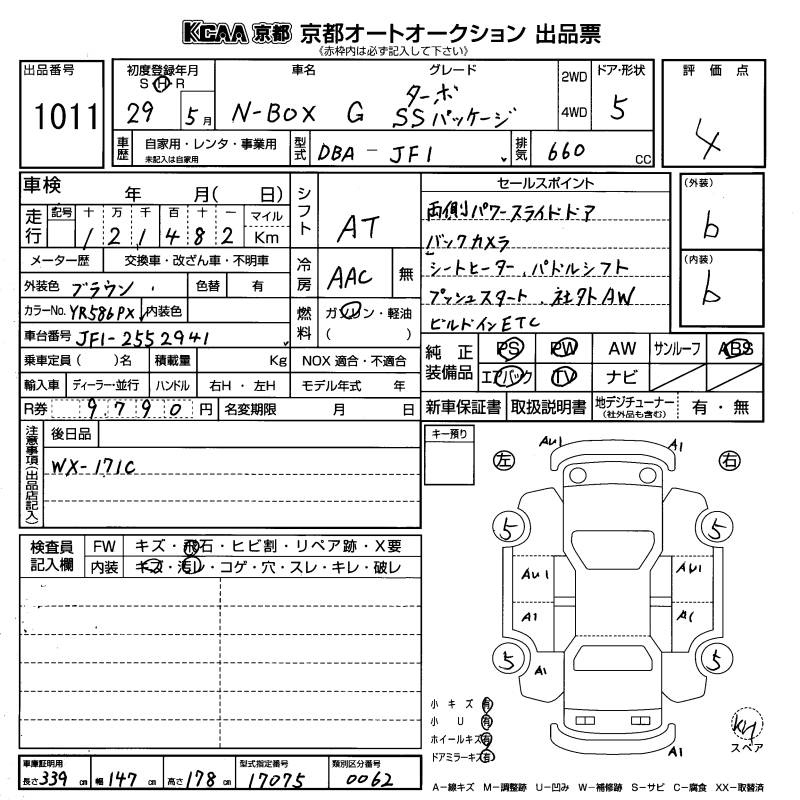 KCAA 京都 京都オートオークション 出品票
《赤枠内は必ず記入して下さい》
出品番号 1011
初度登録年月 S H R 29 5月
車名 N-BOX
グレード G ターボ SSパッケージ
2WD 4WD
ドア・形状 5
評価点 4
車歴 自家用・レンタ・事業用 未記入は自家用
型式 DBA-JF1
排気 660 CC
車検 年 月( 日)
シフト AT
走行 記号 十 万 千 百 十 一 マイル
1 2 1 4 8 2 Km
メーター歴 交換車・改ざん車・不明車
冷房 AAC 無
外装色 ブラウン 色替 有
カラーNo. YR586PX 内装色
燃料 ガソリン・軽油
( )
車台番号 JF1-2552941
乗車定員( )名 積載量 Kg NOX 適合・不適合
輸入車 ディーラー・並行 ハンドル 右H・左H モデル年式 年
R券 9790円 名変期限 月 日
セールスポイント
両側パワースライドドア
バックカメラ
シートヒーター、パドルシフト
プッシュスタート、社外AW
ビルドインETC
(外装) b
(内装) b
純正装備品 PS PW AW サンルーフ ABS
エアバック TV ナビ
新車保証書 取扱説明書 地デジチューナー (社外品も含む) 有・無
注意事項(出品店記入)
後日品
WX-171C
キー預り
左 右
AU1 A1
5 5
AU1 AU1
A1
5 5
A1
A1
検査員記入欄
FW キズ・飛石・ヒビ割・リペア跡・X要
内装 キズ・汚レ・コゲ・穴・スレ・キレ・破レ
小キズ 有
小U 有
ホイールキズ 有
ドアミラーキズ 有
スペア
車庫証明用 長さ339cm 幅147cm 高さ178cm
型式指定番号 17075
類別区分番号 0062
A-線キズ M-調整跡 U-凹み W-補修跡 S-サビ C-腐食 XX-取替済